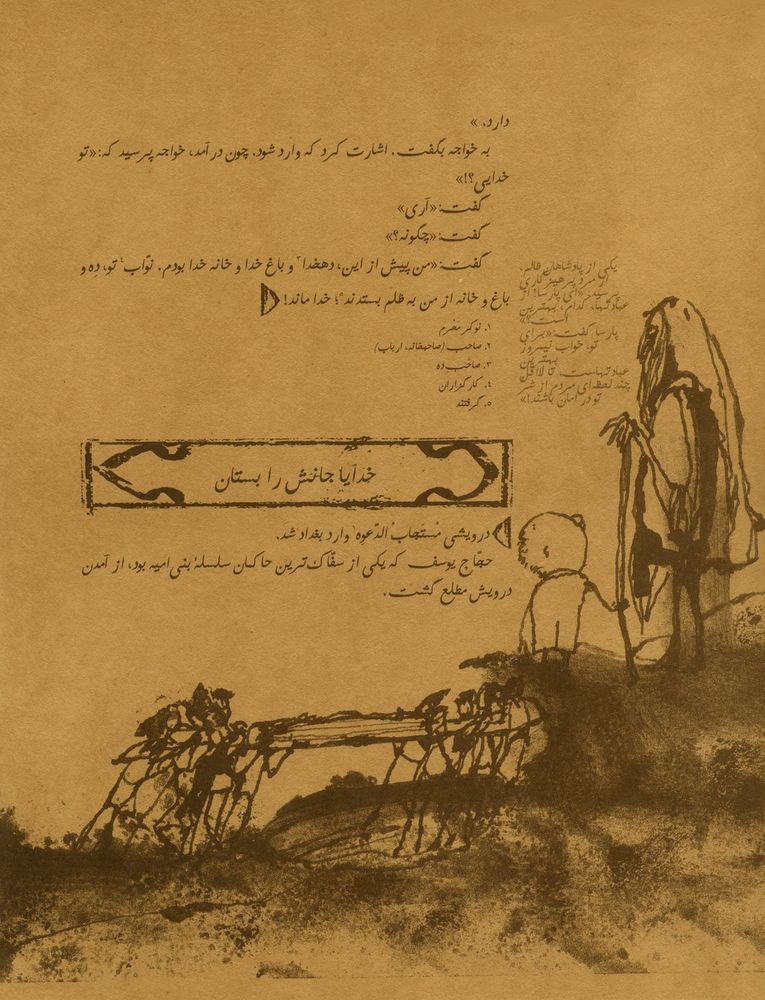 دارد. »
به خواجه بگفت. اشارت کرد که وارد شود. چون در آمد، خواجه پرسید که: «تو
خدایی؟!»
گفت: «آری»
گفت: «چگونه؟»
گفت: «من پیش از این، دهخدا۳ و باغ خدا و خانه خدا بودم. نوّاب۴ تو، ده و
باغ و خانه از من به ظلم بستدند۵؛ خدا ماند!
۱. نوکر محرم
۲. صاحب (صاحبخانه، ارباب)
۳. صاحب ده
۴. کارگزاران
۵. گرفتند
یکی از پادشاهان ظالم،
از مرد پرهیزگاری
پرسید: «ای پارسا! از
عبادتها، کدام، بهترین
است؟»
پارسا گفت: «برای
تو، خواب نیمروز
بهترین
عبادتهاست، تا لااقل
چند لحظه‌ای مردم از شر
تو در امان باشند!»
خدایا جانش را بستان
درویشی مُستَجابُ الدّعوه۱ وارد بغداد شد.
حجّاج یوسف که یکی از سفّاک‌ترین حاکمان سلسلهٔ بنی امیه بود، از آمدن
درویش مطلع گشت.